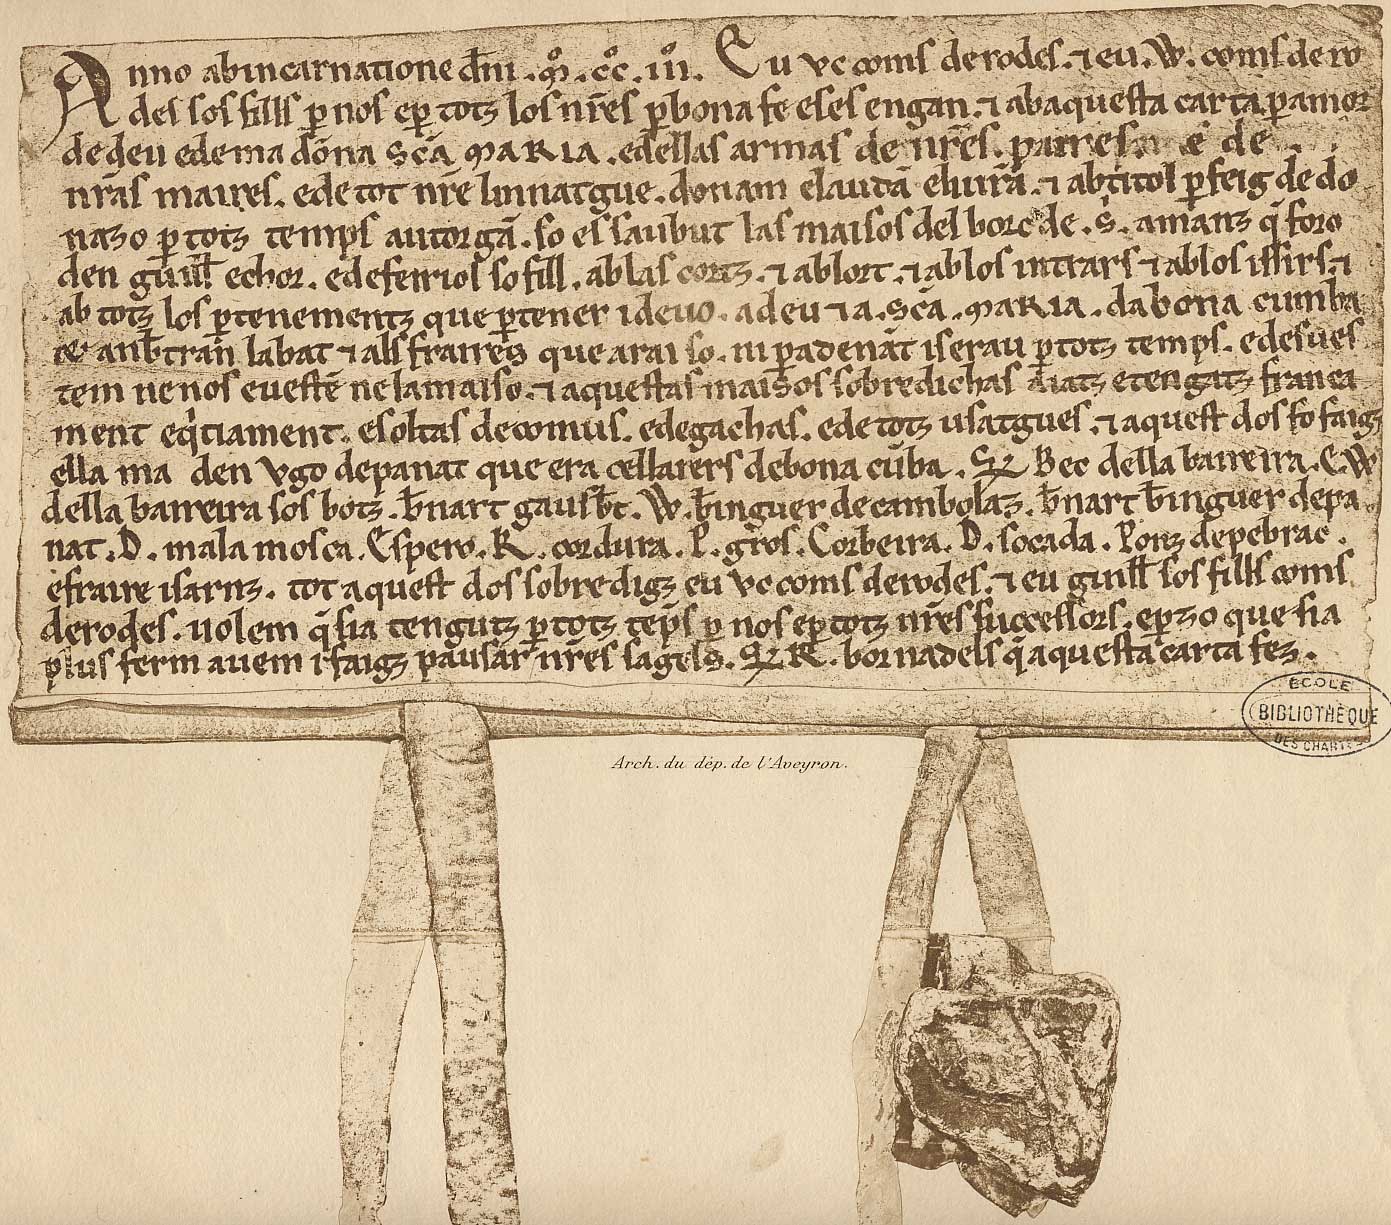 Anno abincarnatione dn̄i .Mº. CCº. IIIº. Eu vc coms de rodes. ⁊ eu. W. coms de ro
des sos fills ꝑ nos e ꝑ totz los nr̄es ꝑ bona fe e ses engan. ⁊ ab aquesta carta ꝑ amor
de deu e de ma dōna SC̄A MARIA. e dellas armas de nr̄es. paires. e de
nr̄as maires. e de tot nr̄e linnatgue. donam e lauda̅ e liura̅. ⁊ ab titol ꝑfeig de do
nazo ꝑ totz temps autorga̅. so es saubut las maisos del borc de. S. amanz q̄ foro
den guill̄ echor. e de ferrios so fill. ab las cortz. ⁊ ab lort. ⁊ ab los intrars ⁊ ab los issirs. ⁊
ab totz los ꝑtenementz que ꝑtener i devo. a deu ⁊ a. SC̄A. MARIA. da bona cumba
e an b̄tran labat ⁊ als fraires que arai so. ni ꝑ adena̅t i serau ꝑ totz temps. e desves
tem ne nos e veste̅ ne la maiso. ⁊ aquestas maisos sobredichas aiatz e tengatz franca
ment e q̄tiament. e soltas de comus. e de gachas. e de totz usatgues. ⁊ aquest dos fo faigz
ella ma den Vgo de panat que era cellarers de bona cu̅ba. S. Bec della barreira. E. W
della barreira sos botz. b̄nart gausb̄t. W. b̄inguer de cambolaz. b̄nart b̄inguer de pa
nat. D. mala mosca. Espero. R. cordura. P. gros. Corbeira. D. socada. Ponz de pebrac.
e fraire isarnz. tot aquest dos sobredigz eu vc coms de rodes. ⁊ eu guill̄ sos fills coms
de rodes. volem q̄ sia tengutz ꝑ totz te̅ps ꝑ nos e ꝑ totz nr̄es successors. e ꝑ zo que sia
plus ferm avem i faigz pausar nr̄es sagels. S. R. bornadels q̄ aquesta carta fez.
ECOLE
BIBLIOTHÈQUE
DES CHARTES
Arch. du dép. de l'Aveyron.